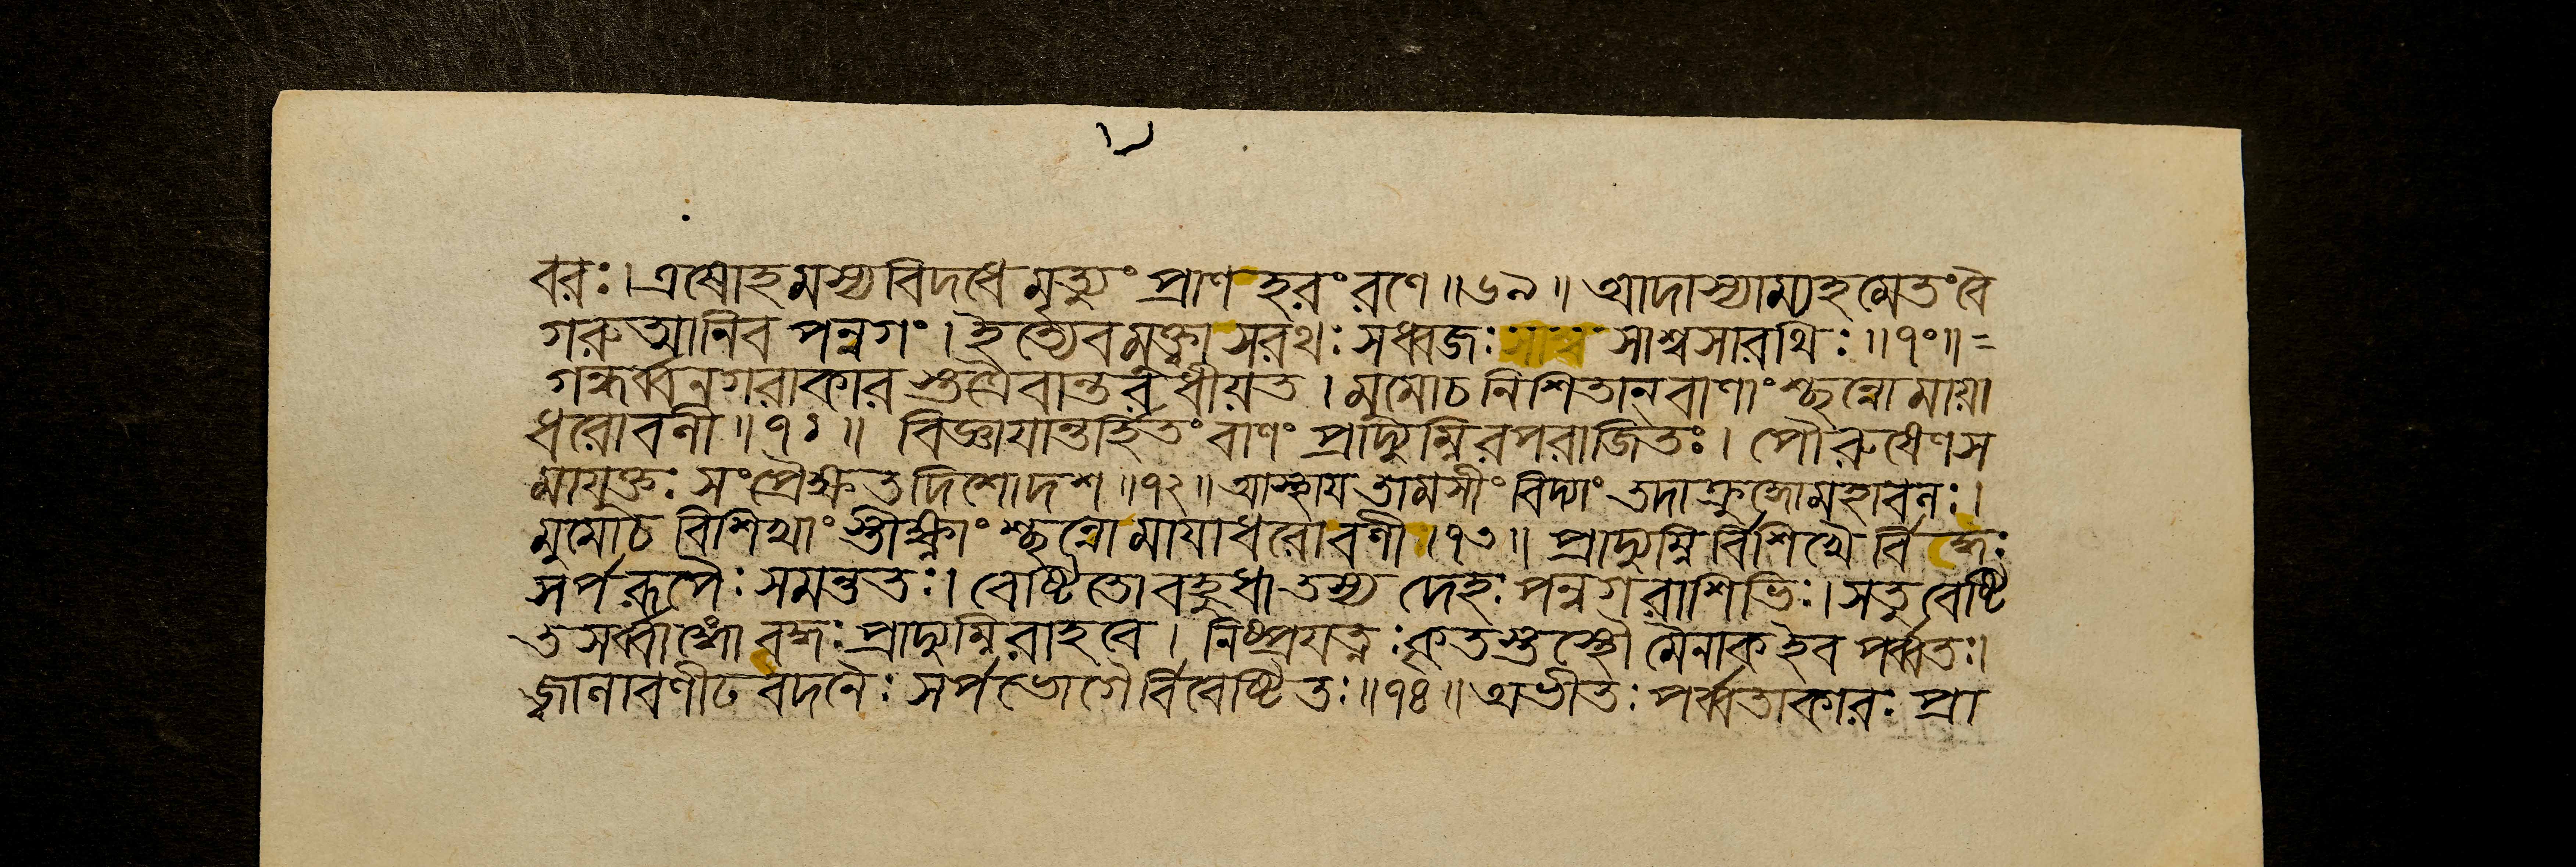 বরঃ।এষোহমস্যবিদধে মৃত্যুং প্রাণহরং রণে॥৬৯॥ আদাস্যাম্যহমেতং বৈ
গরুত্মানিব পন্নগং। ইত্যেবমুক্ত্বা সরথঃ সধ্বজঃ সাশ্বসারথিঃ॥৭০॥=
গন্ধর্ব্বনগরাকারস্তত্রৈবান্তরধীয়ত। মুমোচ নিশিতান্ বাণাংশ্ছন্নো মায়া
ধরোবলী॥৭১॥ বিজ্ঞাযান্তর্হিতং বাণং প্রাদ্যুম্নিরপরাজিতঃ। পৌরুষেণ স
মাযুক্তঃ সংপ্রৈক্ষত দিশোদশ॥৭২॥ আস্থায তামসীং বিদ্যাং তদাক্রুদ্ধোমহাবলঃ।
মুমোচ বিশিখাংস্তীক্ষ্ণাংশ্ছন্নো মাযাধরোবলী।৭৩॥ প্রাদ্যুম্নির্বিশিখৈর্বদ্ধঃ
সর্পরূপৈঃ সমন্ততঃ। বেষ্টিতো বহুধা তস্য দেহঃ পন্নগরাশিভিঃ। সতু বেষ্টি
ত সর্ব্বাঙ্গো বদ্ধঃ প্রাদ্যুম্নিরাহবে। নিষ্প্রযত্নঃকৃতস্তস্থৌ মৈনাক ইব পর্ব্বতঃ।
জ্বালাবলীঢ বদনৈঃ সর্পভোগৈর্বিবেষ্টিতঃ॥৭৪॥ অভীতঃ পর্ব্বতাকারঃ প্রা